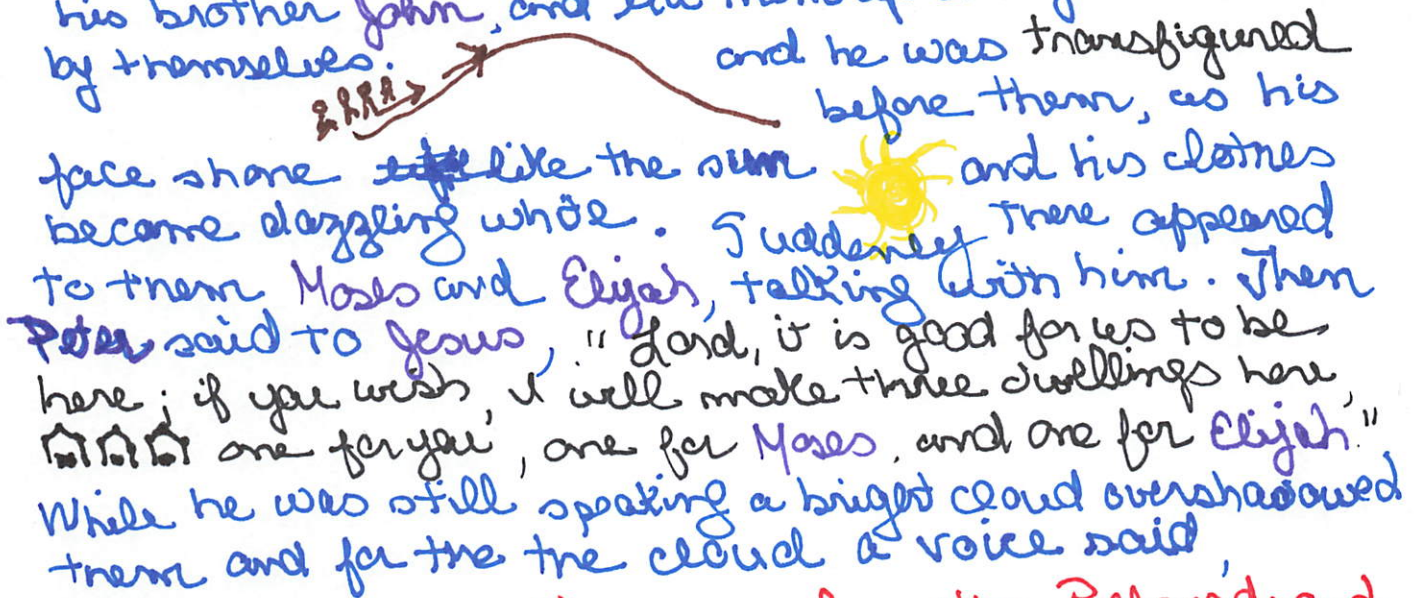 his brother John, and
by themselves. and he was transfigured
before them, as his
face shone like the sun and his clothes
became dazzling white. Suddenly there appeared
to them Moses and Elijah, talking with him. Then
Peter said to Jesus, "Lord, it is good for us to be
here; if you wish, I will make three dwellings here,
one for you, one for Moses, and one for Elijah."
While he was still speaking a bright cloud overshadowed
them and for the the cloud a voice said,